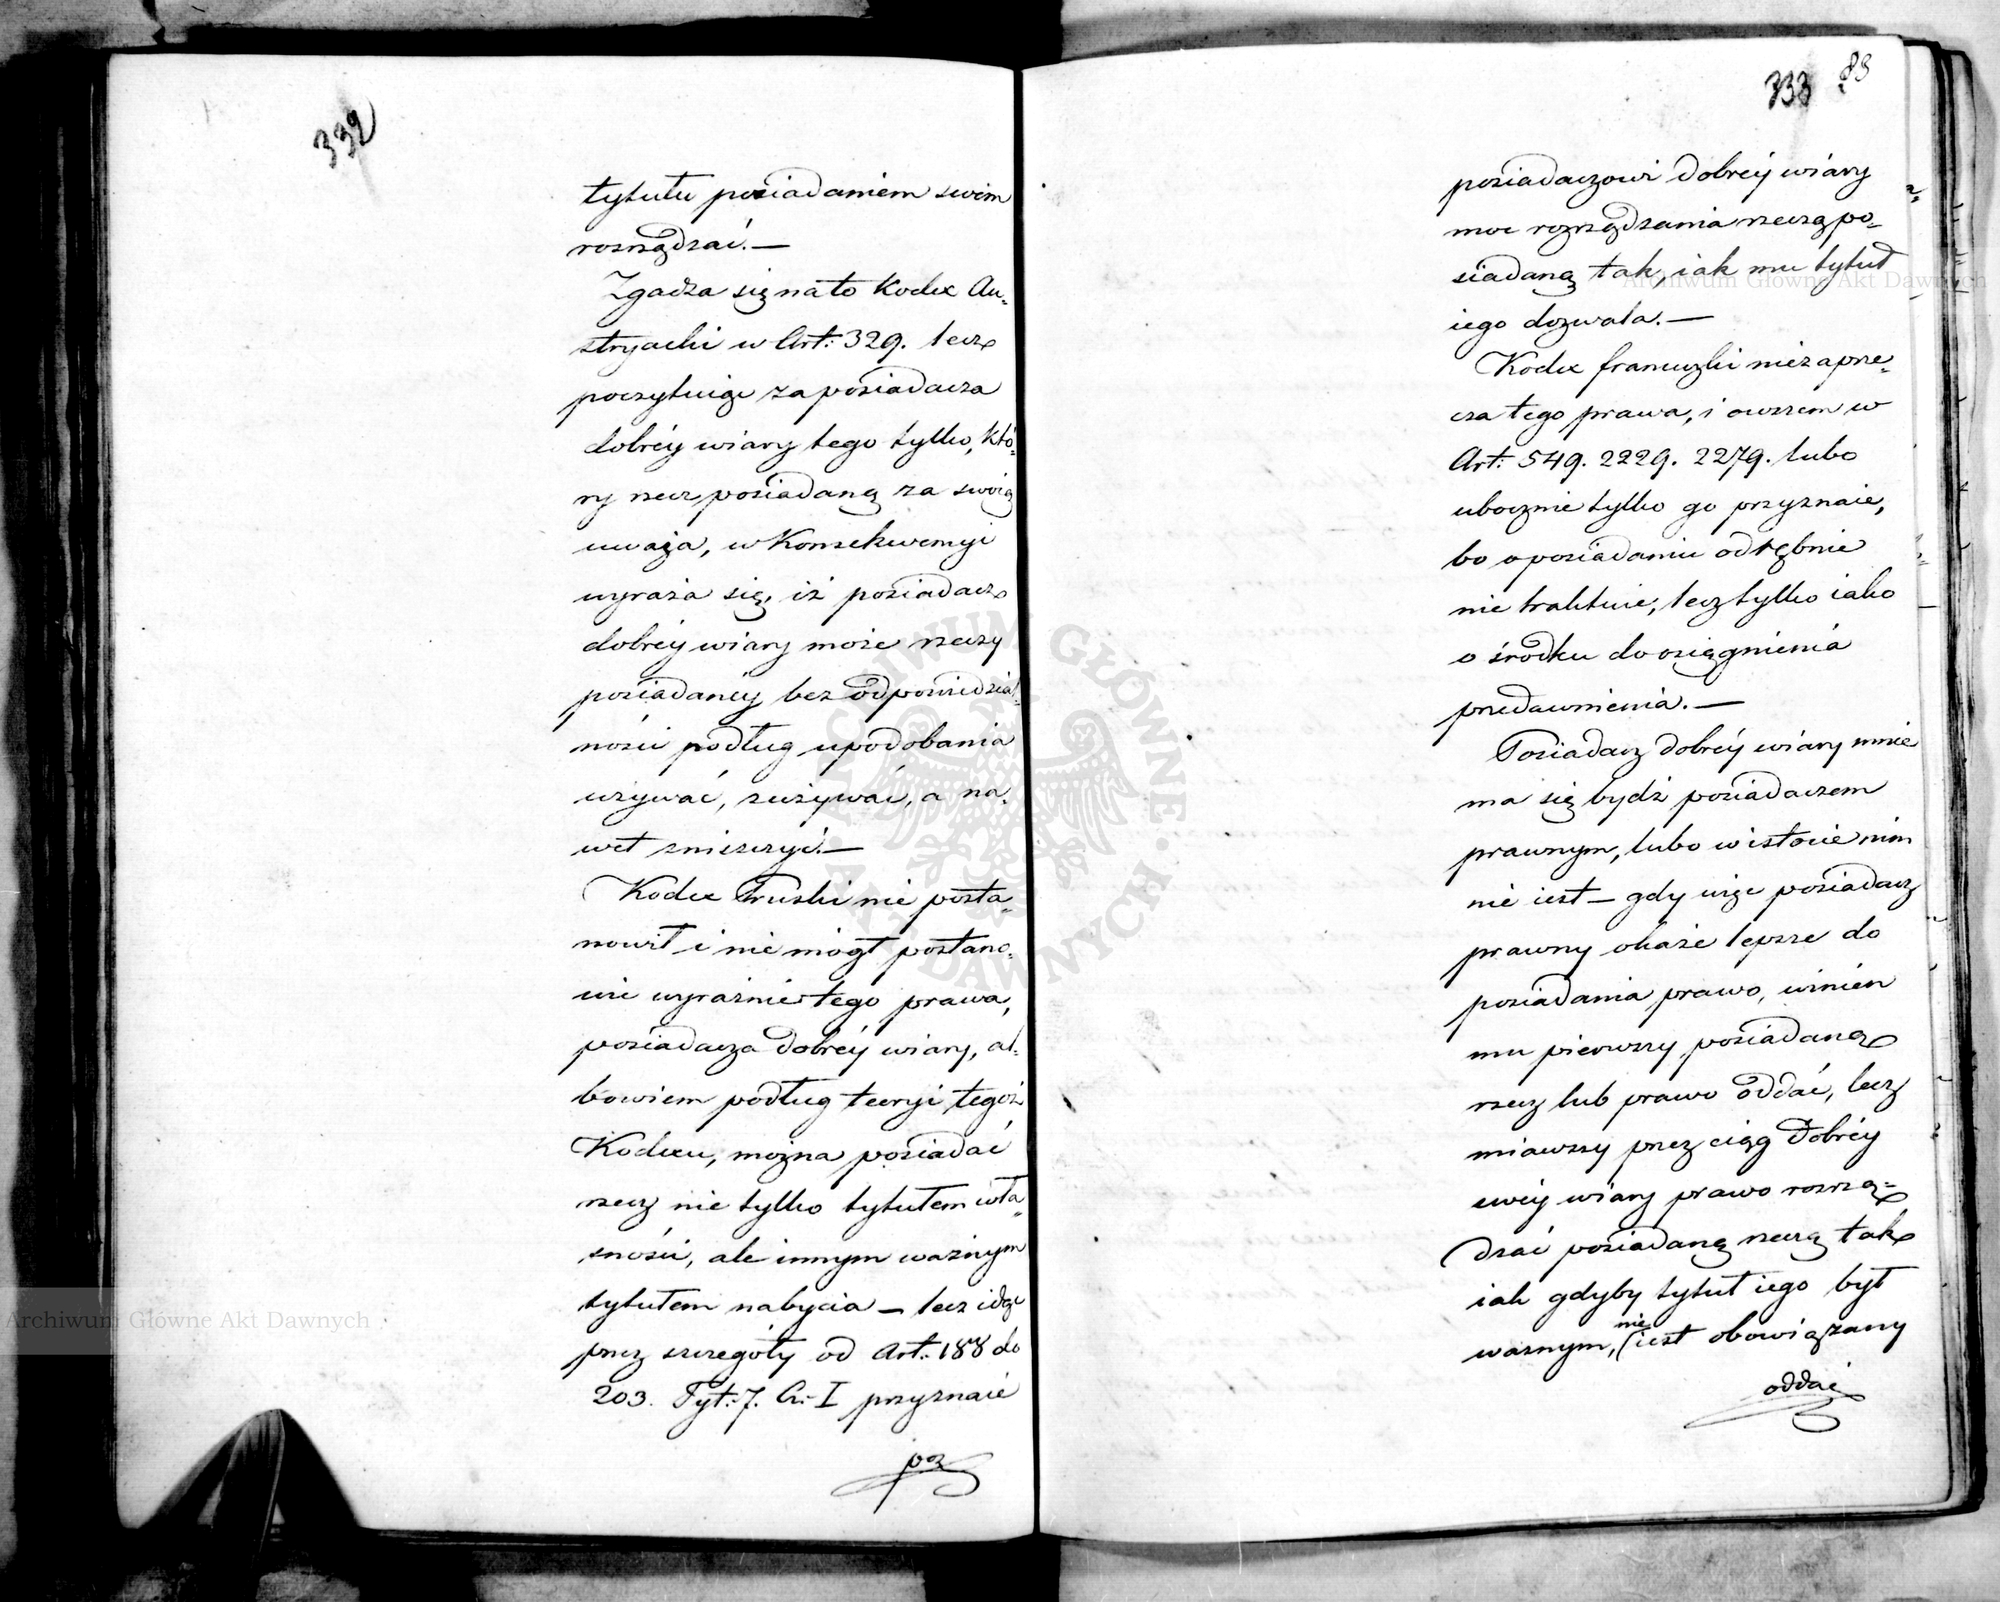 332
tytułu posiadaniem swém
rozrządzać. —
Zgadza się na to Kodex Au-
stryacki w Art: 329. lecz
poczytuiąc za posiadacza
dobréy wiary tego tylko, któ-
ry rzecz posiadaną za swoią
uważa, w Konsekwencyi
wyraża się, iż posiadacz
dobréy wiary może rzeczy
posiadanéy bez odpowiedzial-
ności podług upodobania
używać, zużywać, a na-
wet zniszczyć. —
Kodex Pruski nie posta-
nowił i nie mógł postano-
wić wyraźnie tego prawa,
posiadacza dobréy wiary, al-
bowiem podług teoryi tegoż
Kodexu, można posiadać
rzecz nie tylko tytułem wła-
sności, ale innym ważnym
tytułem nabycia — lecz idąc
przez szczegóły od Art: 188 do
203. Tyt: 7. Cz: I przyznaie
pos
333 83
posiadaczowi dobréy wiary
moc rozrządzania rzeczą po-
siadaną tak, iak mu tytuł
iego dozwala. —
Kodex francuzki nie zaprze-
cza tego prawa, i owszem w
Art: 549. 2229. 2279. lubo
ubocznie tylko go przyznaie,
bo o posiadaniu odrębnie
nie traktuie, lecz tylko iako
o środku do osiągnienia
przedawnienia. —
Posiadacz dobréy wiary mnie
ma się bydź posiadaczem
prawnym, lubo w istocie nim
nie iest — gdy więc posiadacz
prawny okaże lepsze do
posiadania prawo, winien
mu pierwszy posiadaną
rzecz lub prawo oddać, lecz
miawszy przez ciąg dobréy
swéy wiary prawo rozrzą-
dzać posiadaną rzeczą tak
iak gdyby tytuł iego był
ważnym, nie iest obowiązany
oddać
Archiwum Główne Akt Dawnych
Archiwum Główne Akt Dawnych
ARCHIWUM GŁÓWNE AKT DAWNYCH